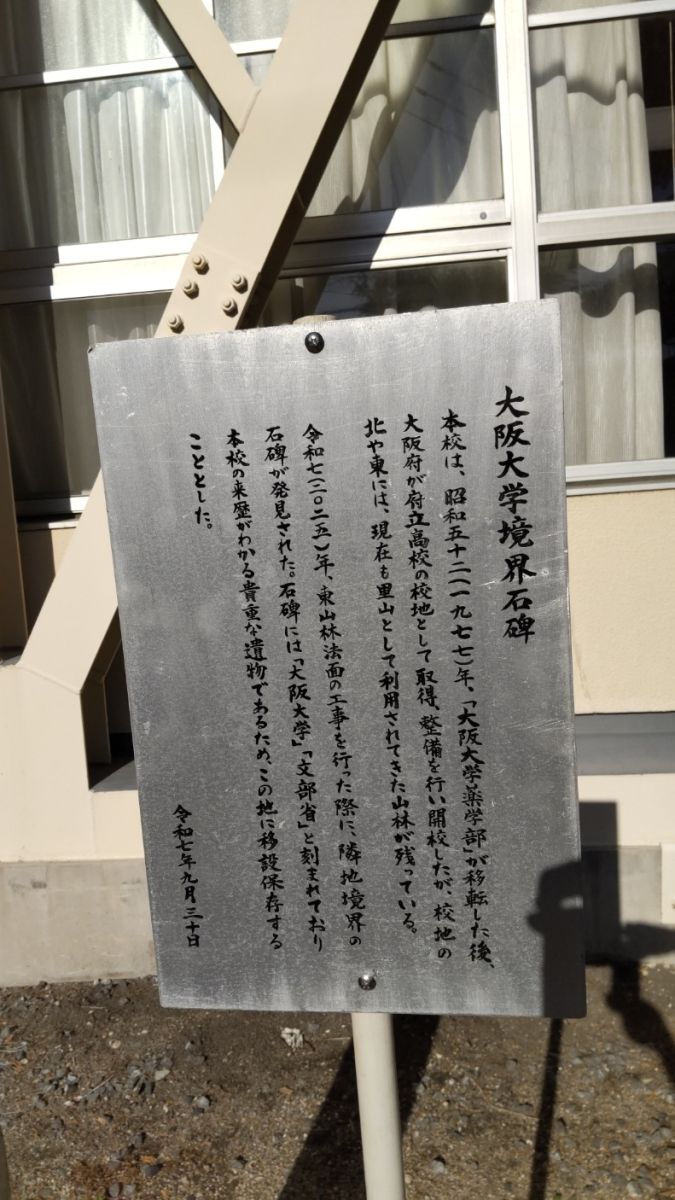 大阪大学境界石碑
本校は、昭和五十二(一九七七)年、「大阪大学薬学部」が移転した後、
大阪府が府立高校の校地として取得、整備を行い開校したが、校地の
北や東には、現在も里山として利用されてきた山林が残っている。
令和七(二〇二五)年、東山林法面の工事を行った際に、隣地境界の
石碑が発見された。石碑には「大阪大学」「文部省」と刻まれており
本校の来歴がわかる貴重な遺物であるため、この地に移設保存する
こととした。
令和七年九月三十日